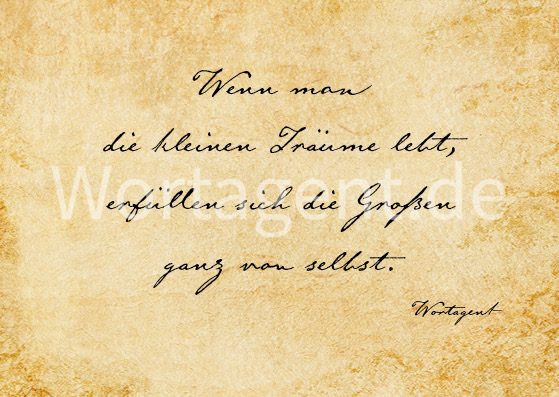 Wenn man
die kleinen Träume lebt,
Wortagent.de
erfüllen sich die Großen
ganz von selbst.
Wortagent